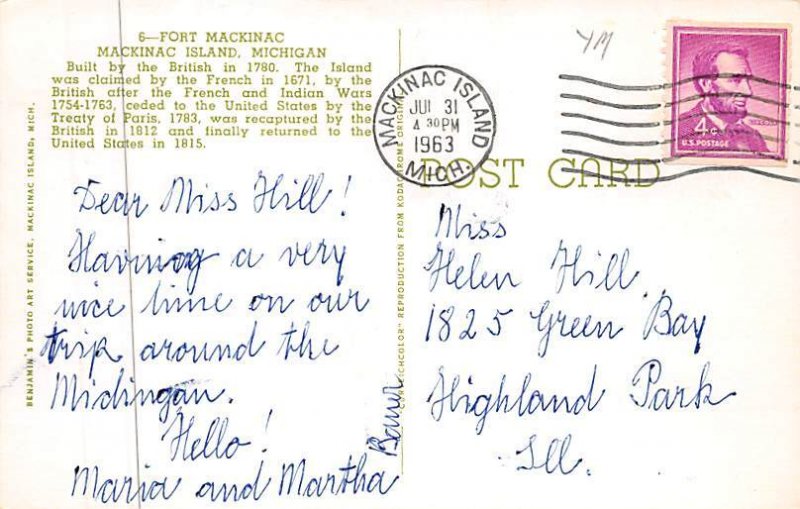 6—FORT MACKINAC
MACKINAC ISLAND, MICHIGAN
Built by the British in 1780. The Island
was claimed by the French in 1671, by the
British after the French and Indian Wars
1754-1763, ceded to the United States by the
Treaty of Paris, 1783, was recaptured by the
British in 1812 and finally returned to the
United States in 1815.
BENJAMIN'S PHOTO ART SERVICE, MACKINAC ISLAND, MICH.
Dear Miss Hill!
Having a very
nice time on our
trip around the
Midingan.
Hello!
Maria and Martha
Bauer
REPRODUCTION FROM KODACHROME ORIGINAL
MACKINAC ISLAND
JUL 31
4 30 PM
1963
MICH.
YM
4¢
LINCOLN
U.S. POSTAGE
POST CARD
Miss
Helen Hill.
1825 Green Bay
Highland Park
Ill.